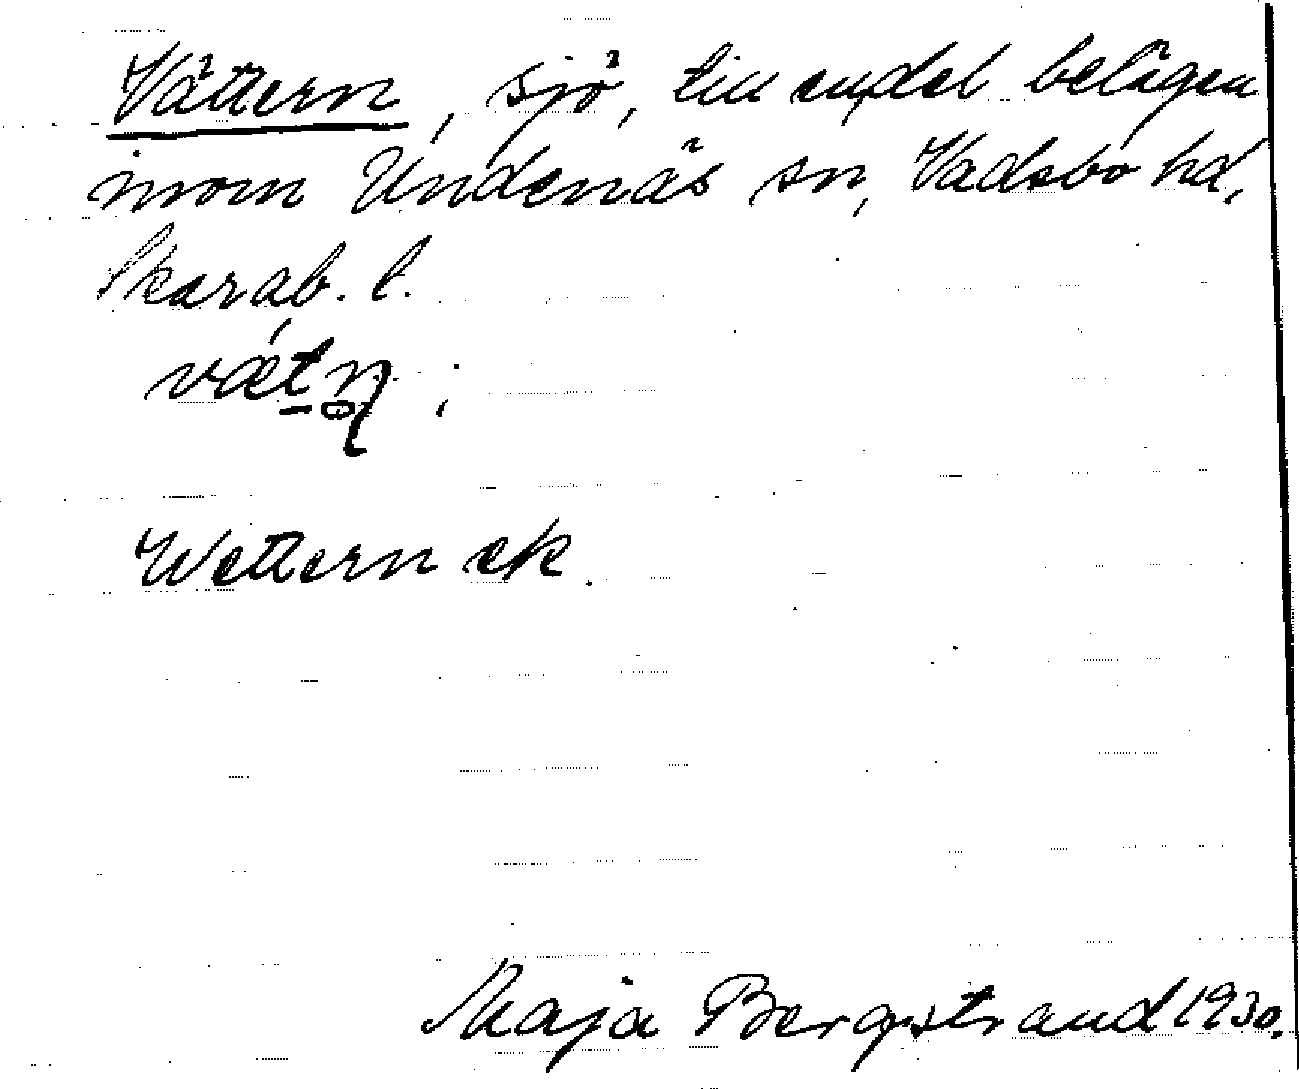 Vättern, sjö, till en del belägen
inom Undenäs sn, Vadsbo hd,
Skarab. l.
vǽtn̥;
Wettern ek.
Maja Bergstrand 1930.